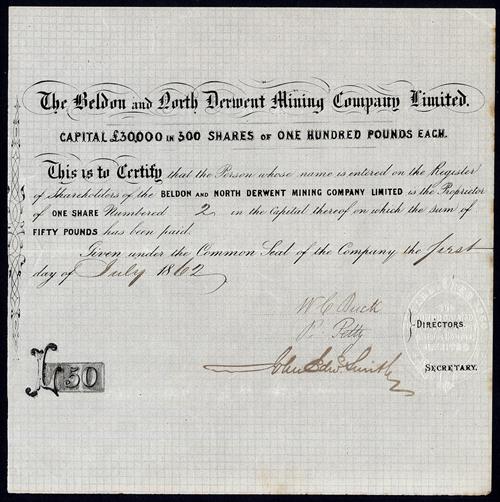 The Beldon and North Derwent Mining Company Limited.
CAPITAL £30,000 IN 300 SHARES OF ONE HUNDRED POUNDS EACH.
This is to Certify that the Person whose name is entered on the Register
of Shareholders of the BELDON AND NORTH DERWENT MINING COMPANY LIMITED is the Proprietor
of ONE SHARE Numbered 2 in the Capital thereof on which the sum of
FIFTY POUNDS has been paid.
Given under the Common Seal of the Company the first
day of July 1862
W C Duck
P. Petty
DIRECTORS.
John Edwd. Smith
SECRETARY.
£50